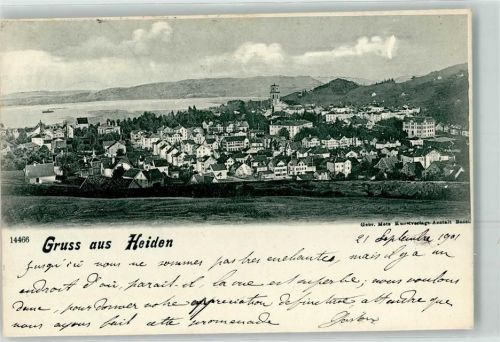 14466
Gebr. Metz Kunstverlags-Anstalt Basel.
Gruss aus Heiden
21 Septembre 1901
Jusqu'ici nous ne sommes pas très enchantés, mais il y a un
endroit d'où, paraît-il, la vue est superbe, nous voulons
donc, pour donner notre appréciation définitive attendre que
nous ayons fait cette promenade